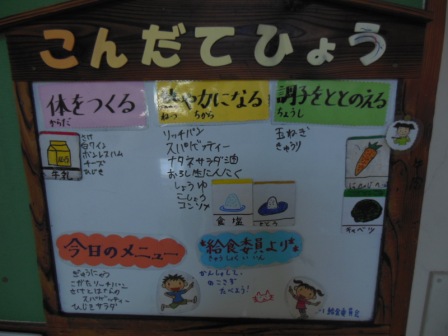 こんだてひょう
体をつくる
からだ
熱や力になる
ねつ ちから
調子をととのえる
ちょうし
さけ
白ワイン
ボンレスハム
チーズ
ひじき
牛乳
リッチパン
スパゲッティー
ナタネサラダ油
おろし生にんにく
しょうゆ
こしょう
コンソメ
食塩
さとう
玉ねぎ
きゅうり
にんじん
キャベツ
今日のメニュー
ぎゅうにゅう
こがたリッチパン
さけとはムの
スパゲッティー
ひじきサラダ
給食委員より
きゅうしょくいいん
かんしゃして、
のこさず
たべよう!
給食委員